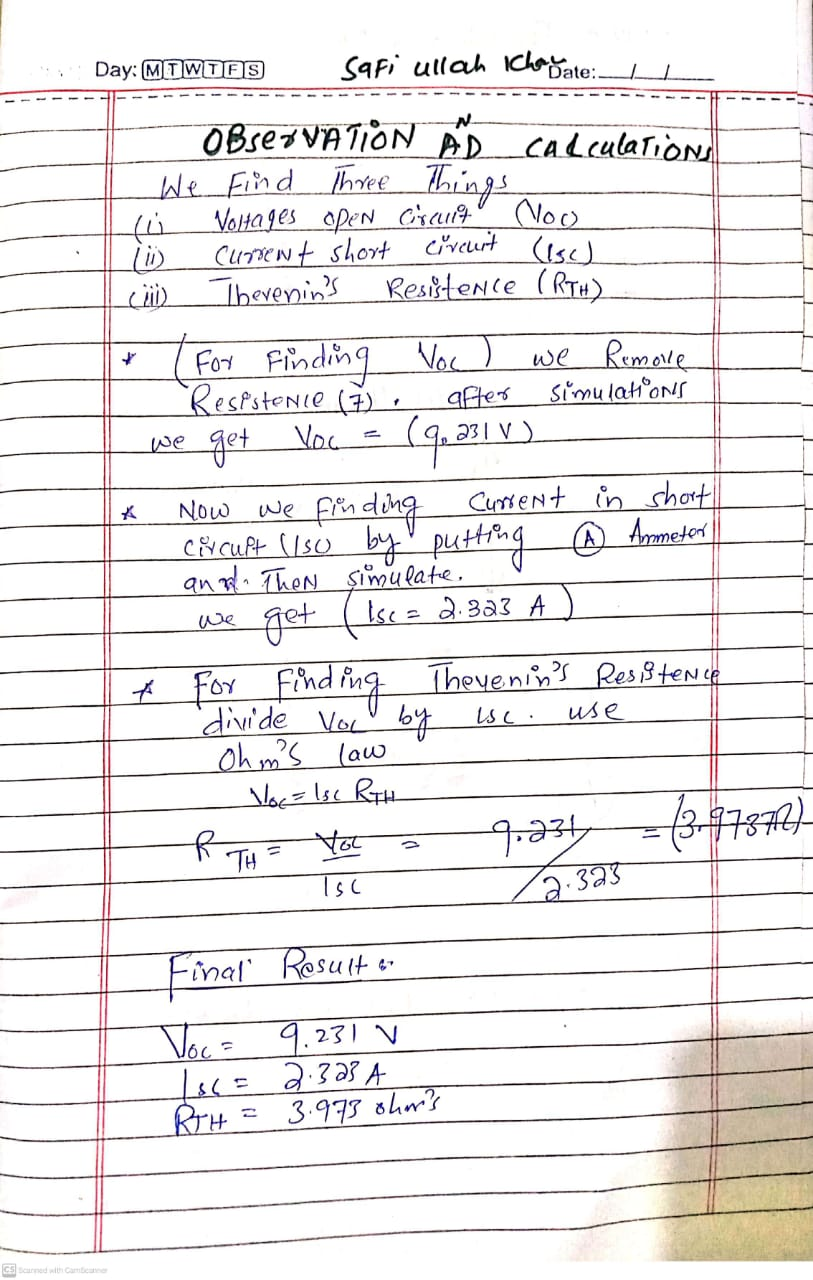 Day: M T W T F S Safi ullah Khan Date: __/__/__
OBserVATiON AND CALculATiONs
We Find Three Things
(i) Voltages open Circuit (Voc)
(ii) Current short circuit (Isc)
(iii) Thevenin's Resistence (RTH)
* (For Finding Voc) we Remove
Resistence (7). after simulations
we get Voc = (9.231 V)
* Now we finding Current in short
circuit (Isc) by putting (A) Ammeter
and. Then simulate.
we get (Isc = 2.323 A)
* For Finding Thevenin's Resistence
divide Voc by Isc. use
Ohm's law
Voc = Isc RTH
RTH = Voc/Isc = 9.231/2.323 = (3.9737Ω)
Final Result :-
Voc = 9.231 V
Isc = 2.323 A
RTH = 3.973 ohm's
CS Scanned with CamScanner